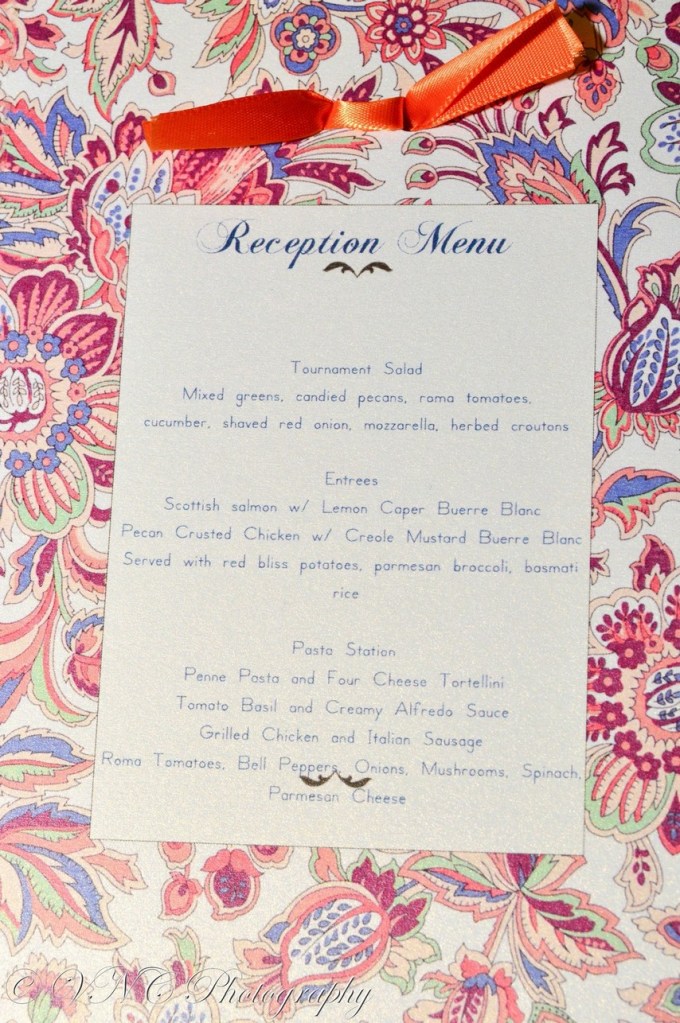 Reception Menu
Tournament Salad
Mixed greens, candied pecans, roma tomatoes,
cucumber, shaved red onion, mozzarella, herbed croutons
Entrees
Scottish salmon w/ Lemon Caper Buerre Blanc
Pecan Crusted Chicken w/ Creole Mustard Buerre Blanc
Served with red bliss potatoes, parmesan broccoli, basmati
rice
Pasta Station
Penne Pasta and Four Cheese Tortellini
Tomato Basil and Creamy Alfredo Sauce
Grilled Chicken and Italian Sausage
Roma Tomatoes, Bell Peppers, Onions, Mushrooms, Spinach,
Parmesan Cheese
© VNC Photography